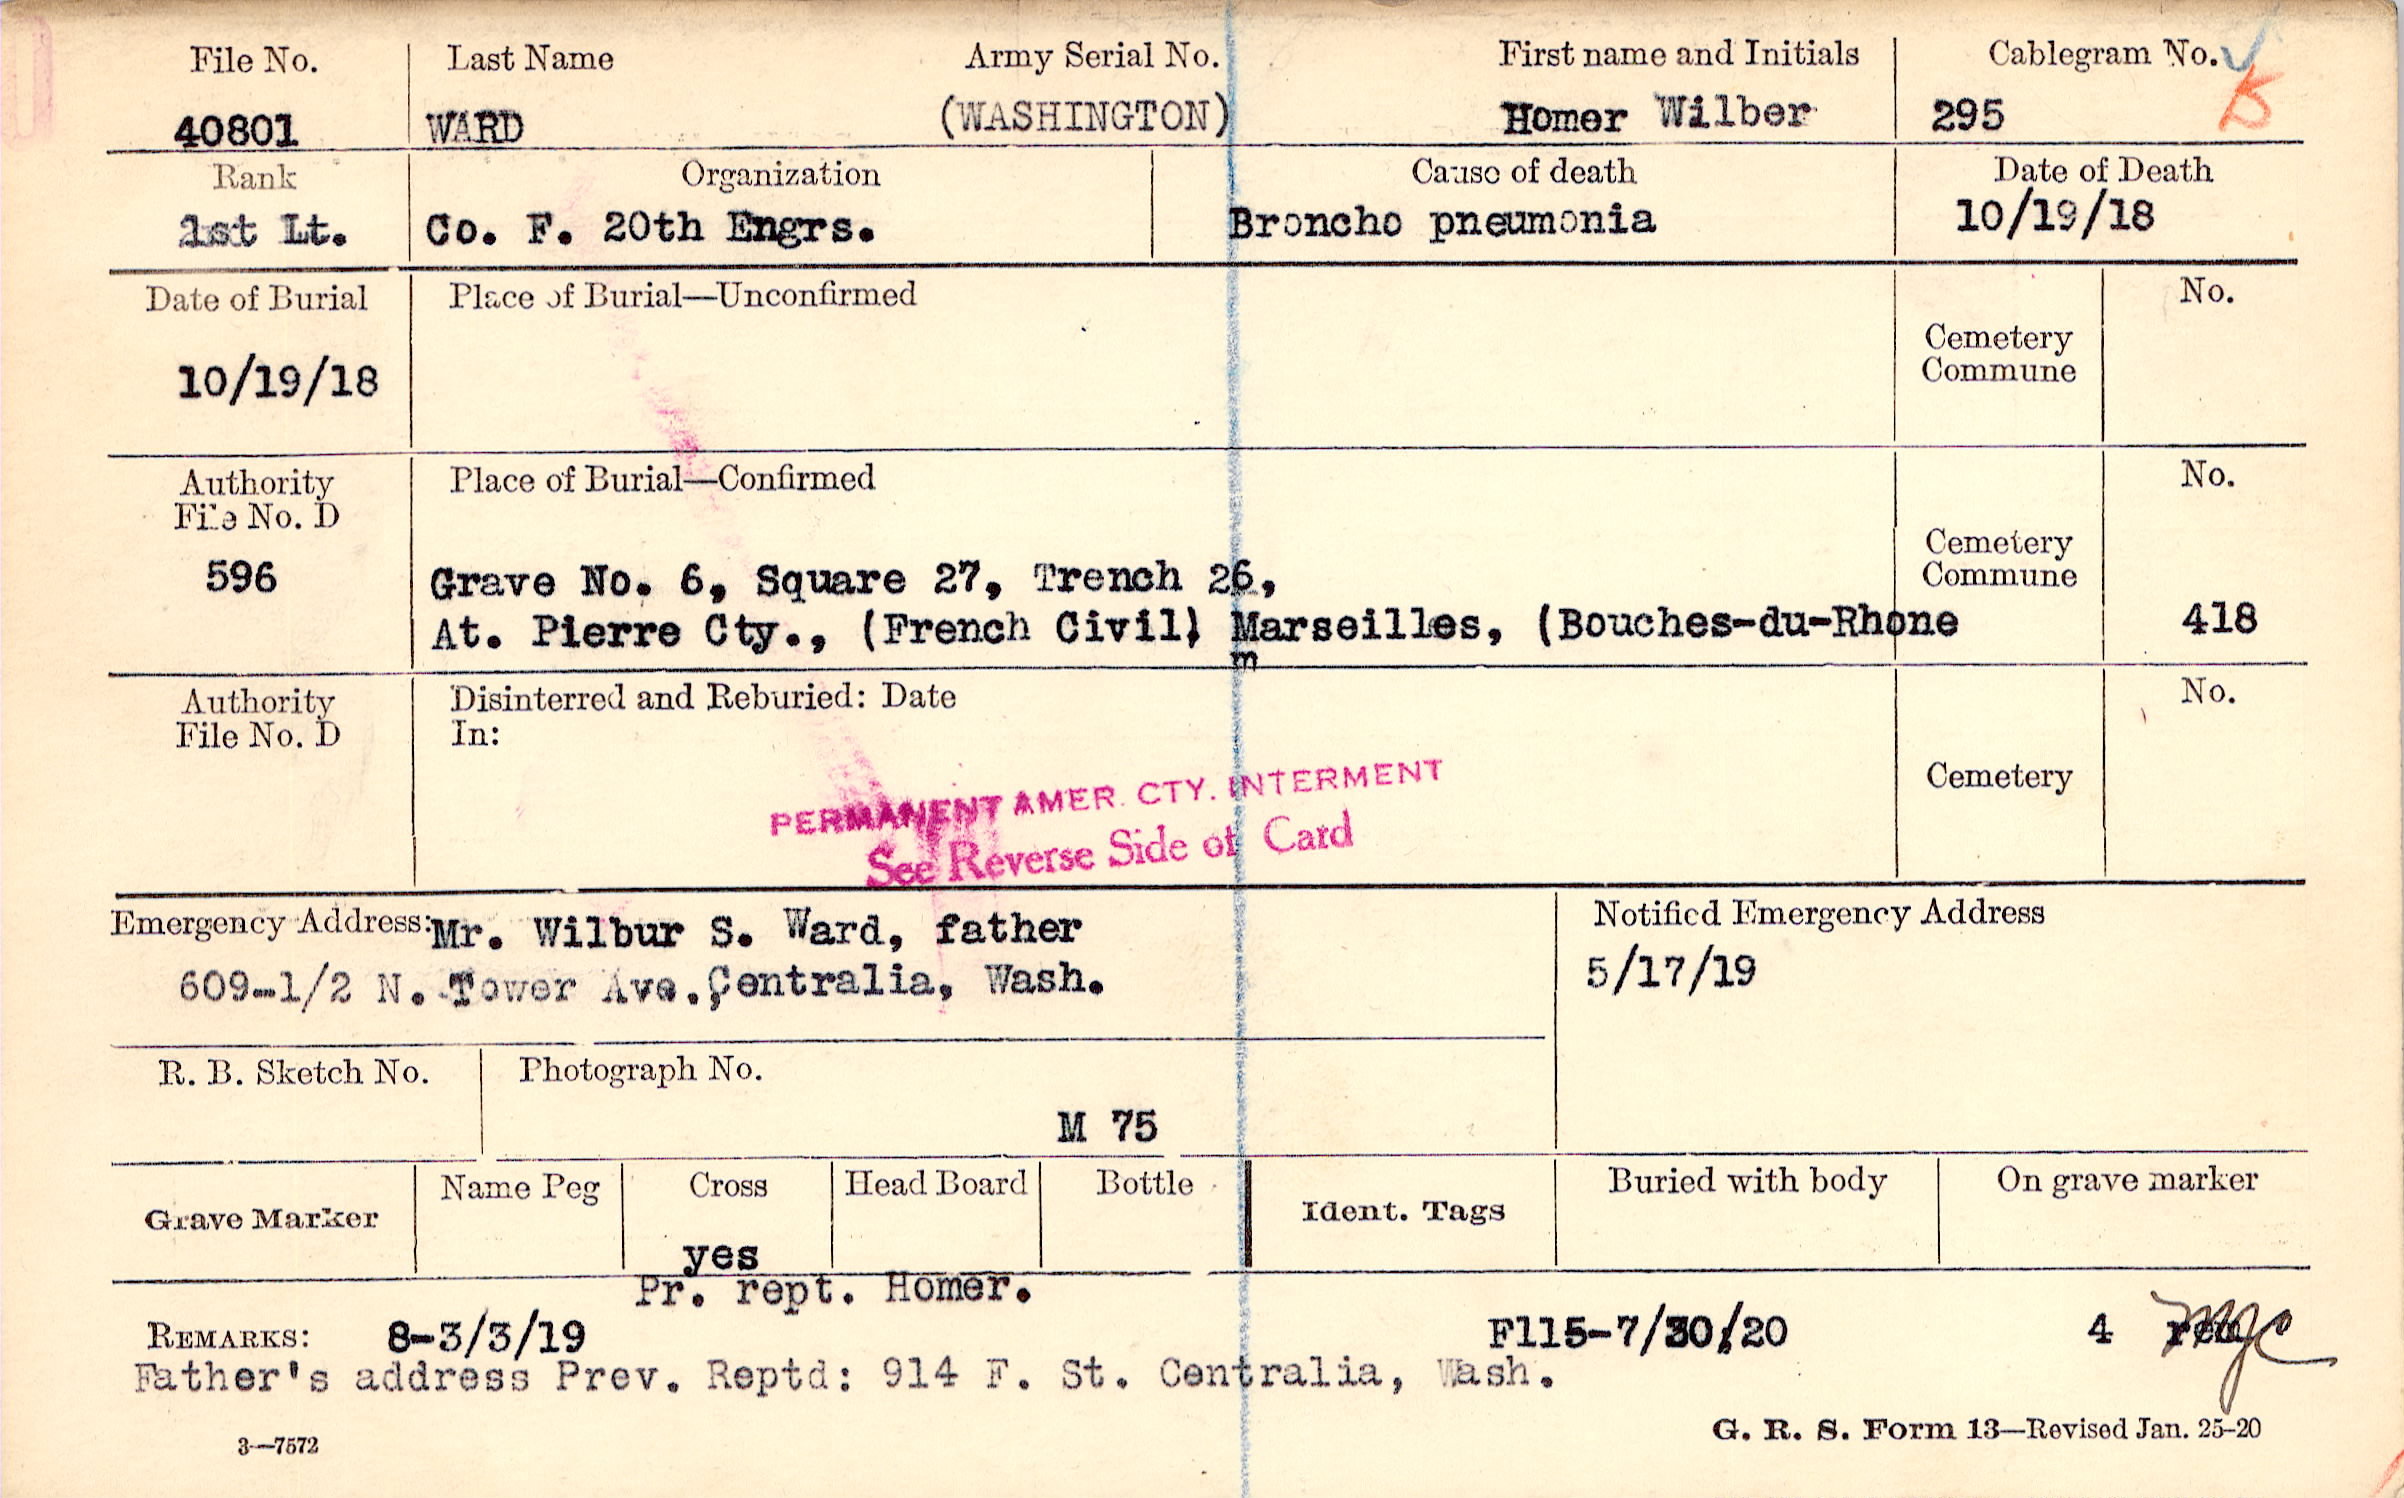 File No. Last Name Army Serial No. First name and Initials Cablegram No.
40801 WARD (WASHINGTON) Homer Wilber 295
Rank Organization Cause of death Date of Death
1st Lt. Co. F. 20th Engrs. Broncho pneumonia 10/19/18
Date of Burial Place of Burial—Unconfirmed No.
Cemetery
Commune
10/19/18
Authority Place of Burial—Confirmed No.
File No. D
Cemetery
Commune
596 Grave No. 6, Square 27, Trench 26,
At. Pierre Cty., (French Civil) Marseilles, (Bouches-du-Rhone 418
m
Authority Disinterred and Reburied: Date No.
File No. D In:
Cemetery
PERMANENT AMER. CTY. INTERMENT
See Reverse Side of Card
Emergency Address: Mr. Wilbur S. Ward, father Notified Emergency Address
609-1/2 N. Tower Ave., Centralia, Wash. 5/17/19
R. B. Sketch No. Photograph No.
M 75
Grave Marker Name Peg Cross Head Board Bottle Ident. Tags Buried with body On grave marker
yes
Pr. rept. Homer.
REMARKS: 8-3/3/19 F115-7/30/20 4
Father's address Prev. Reptd: 914 F. St. Centralia, Wash.
G. R. S. Form 13—Revised Jan. 25-20
3—7572